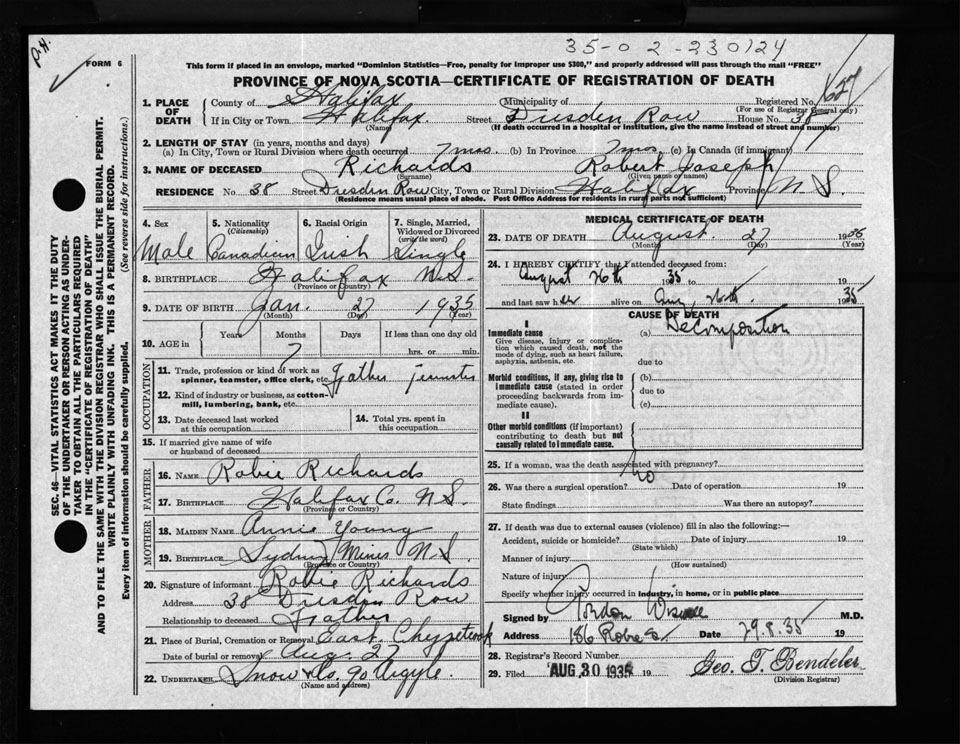 35-02-230124
P.H.
FORM 6
This form if placed in an envelope, marked "Dominion Statistics—Free, penalty for improper use $300," and properly addressed will pass through the mail "FREE"
PROVINCE OF NOVA SCOTIA—CERTIFICATE OF REGISTRATION OF DEATH
SEC. 46—VITAL STATISTICS ACT MAKES IT THE DUTY
OF THE UNDERTAKER OR PERSON ACTING AS UNDER-
TAKER TO OBTAIN ALL THE PARTICULARS REQUIRED
IN THE "CERTIFICATE OF REGISTRATION OF DEATH"
AND TO FILE THE SAME WITH THE DIVISION REGISTRAR WHO SHALL ISSUE THE BURIAL PERMIT.
WRITE PLAINLY WITH UNFADING INK. THIS IS A PERMANENT RECORD.
Every item of information should be carefully supplied. (See reverse side for instructions.)
1. PLACE OF DEATH County of Halifax Municipality of Registered No. 1627
(For use of Registrar General only)
If in City or Town Halifax. Street Dresden Row House No. 38
(Name) (If death occurred in a hospital or institution, give the name instead of street and number)
2. LENGTH OF STAY (in years, months and days)
(a) In City, Town or Rural Division where death occurred 7 mos. (b) In Province 7 mos. (c) In Canada (if immigrant)
3. NAME OF DECEASED Richards Robert Joseph
(Surname) (Given name or names)
RESIDENCE No. 38 Street Dresden Row City, Town or Rural Division Halifax Province N.S.
(Residence means usual place of abode. Post Office Address for residents in rural parts not sufficient)
4. Sex 5. Nationality (Citizenship) 6. Racial Origin 7. Single, Married, Widowed or Divorced (write the word)
Male Canadian Irish Single
8. BIRTHPLACE Halifax N.S.
(Province or Country)
9. DATE OF BIRTH Jan. 27 1935
(Month) (Day) (Year)
10. AGE in Years Months Days If less than one day old
7 hrs. or min.
OCCUPATION
11. Trade, profession or kind of work as
spinner, teamster, office clerk, etc. Father Teamster
12. Kind of industry or business, as cotton-
mill, lumbering, bank, etc.
13. Date deceased last worked at this occupation
14. Total yrs. spent in this occupation
15. If married give name of wife
or husband of deceased
FATHER
16. NAME Robie Richards
17. BIRTHPLACE Halifax Co. N.S.
(Province or Country)
MOTHER
18. MAIDEN NAME Annie Young
19. BIRTHPLACE Sydney Mines N.S.
(Province or Country)
20. Signature of informant Robie Richards
Address 38 Dresden Row
Relationship to deceased Father
21. Place of Burial, Cremation or Removal East Chezzetcook
Date of burial or removal Aug. 27
22. UNDERTAKER Snow & Co. 90 Argyle.
(Name and address)
MEDICAL CERTIFICATE OF DEATH
23. DATE OF DEATH August. 27 19
(Month) (Day) (Year)
24. I HEREBY CERTIFY that I attended deceased from:
August 26th 1935
and last saw h alive on Aug. 26th. 1935
CAUSE OF DEATH
I
Immediate cause (a) Decomposition
Give disease, injury or complica-
tion which caused death, not the
mode of dying, such as heart failure,
asphyxia, asthenia, etc. due to
Morbid conditions, if any, giving rise to (b)
immediate cause (stated in order
proceeding backwards from im-
mediate cause). due to
(c)
II
Other morbid conditions (if important)
contributing to death but not
causally related to immediate cause.
25. If a woman, was the death associated with pregnancy?
26. Was there a surgical operation? no Date of operation 19
State findings Was there an autopsy?
27. If death was due to external causes (violence) fill in also the following:—
Accident, suicide or homicide? Date of injury 19
(State which)
Manner of injury
(How sustained)
Nature of injury
Specify whether injury occurred in industry, in home, or in public place
Signed by Gordon Wiswell M.D.
Address 186 Robie St Date 29.8.35 19
28. Registrar's Record Number
29. Filed AUG 30 1935 19 Geo. T. Bendeler
(Division Registrar)